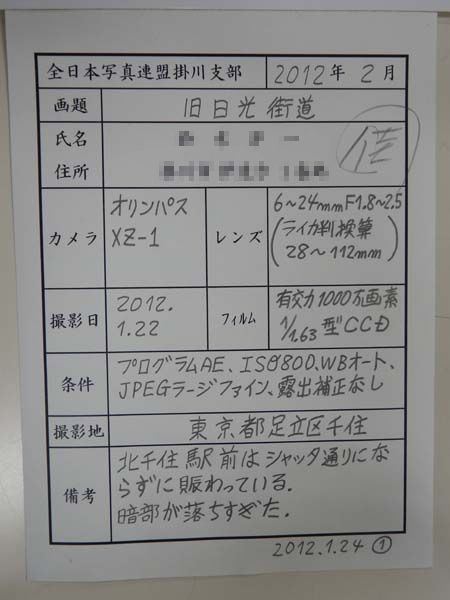 全日本写真連盟掛川支部 2012年 2月
画題 旧日光街道
氏名
住所
カメラ オリンパス
XZ-1
レンズ 6～24mmF1.8～2.5
(ライカ判換算
28～112mm)
撮影日 2012.
1.22
フィルム 有効1000万画素
1/1.63型CCD
条件 プログラムAE、ISO800、WBオート、
JPEGラージファイン、露出補正なし
撮影地 東京都足立区千住
備考 北千住駅前はシャッタ通りにな
らずに賑わっている.
暗部が落ちすぎた.
2012.1.24 ①